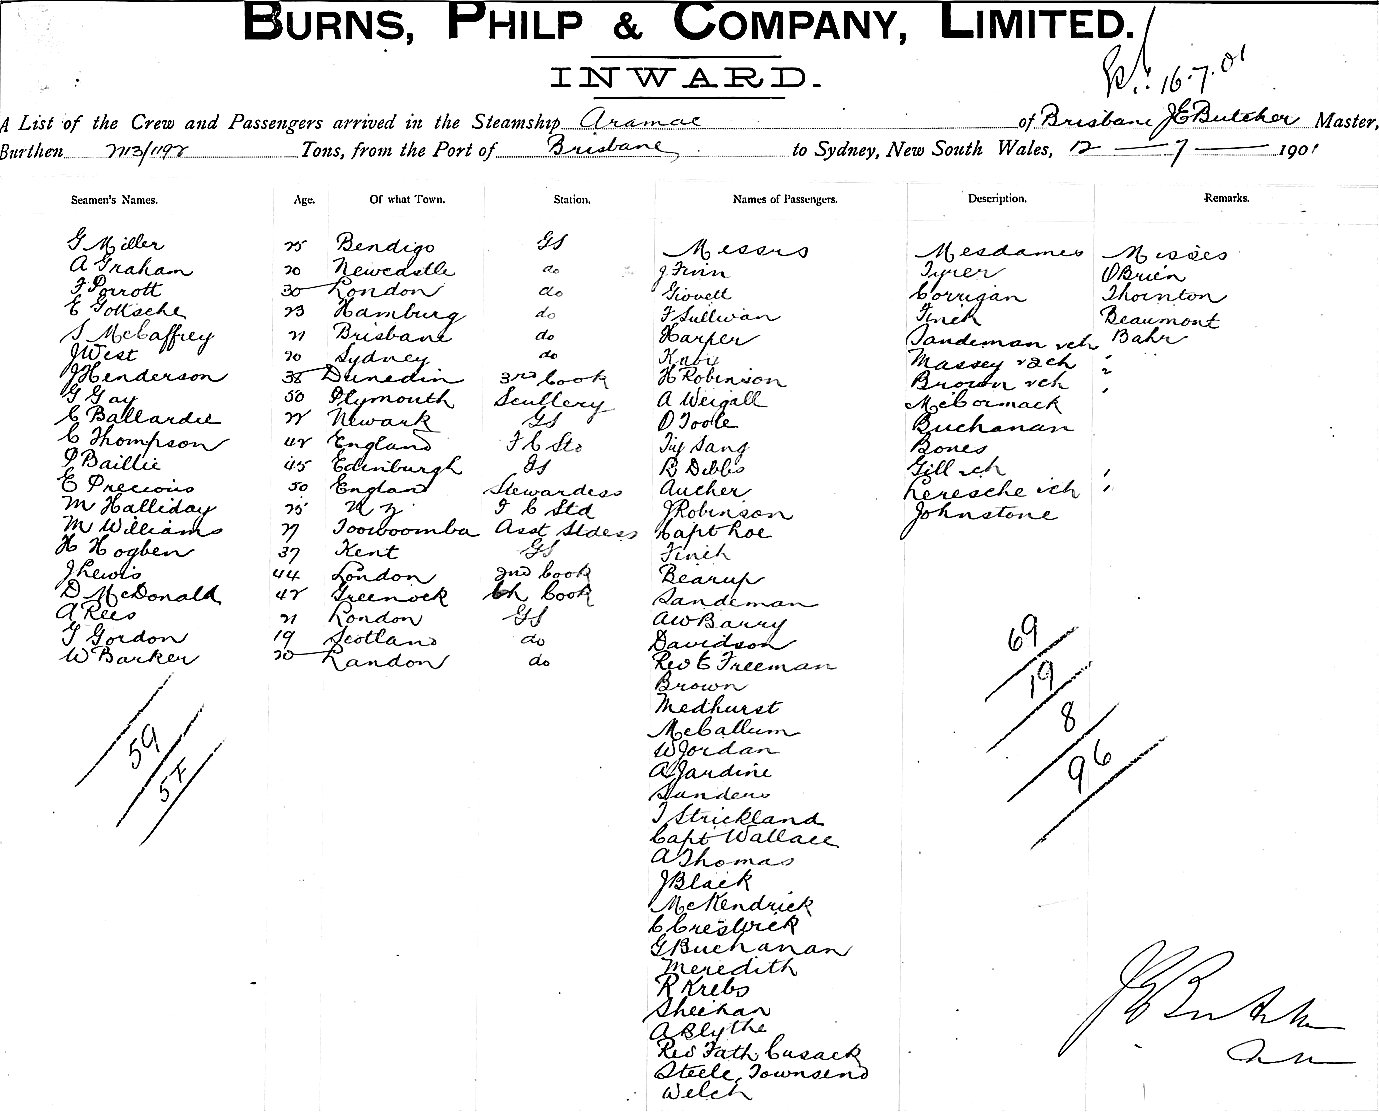 BURNS, PHILP & COMPANY, LIMITED.
INWARD.
16.7.01
A List of the Crew and Passengers arrived in the Steamship Aramac of Brisbane J E Butcher Master,
Burthen 2113/1192 Tons, from the Port of Brisbane to Sydney, New South Wales, 12 — 7 — 1901
Seamen's Names. Age. Of what Town. Station. Names of Passengers. Description. Remarks.
G Miller 25 Bendigo GS Messrs Mesdames Misses
A Graham 20 Newcastle do J Finn Tyrer O'Brien
F Porrott 30 London do Giovell Corrigan Thornton
E Gottsche 23 Hamburg do F Sullivan Finch Beaumont
S McCaffrey 21 Brisbane do Harper Sandeman & ch Bahr
J West 20 Sydney do Knox Massey & 2 ch 2
J Henderson 38 Dunedin 3rd Cook H Robinson Brown & ch
G Gay 50 Plymouth Scullery A Weigall McCormack
C Ballardie 22 Newark GS D Toole Buchanan
C Thompson 42 England F C Std Tiy Sang Bones
P Baillie 45 Edinburgh GS R Dibbs Gill & ch
E Precious 50 England Stewardess Aucher Leresche & ch
M Halliday 25 N Z F C Std J Robinson Johnstone
M Williams 27 Toowoomba Asst Stdess Capt Roe
H Hogben 37 Kent GS Finch
J Lewis 44 London 2nd Cook Bearup
D McDonald 42 Greenock Ch Cook Sandeman
A Rees 21 London GS A W Barry
T Gordon 19 Scotland do Davidson
W Barker 20 London do Rev E Freeman
Brown
Medhurst
McCallum
W Jordan
A Jardine
Sanders
T Strickland
Capt Wallace
A Thomas
J Black
McKendrick
C Creswick
G Buchanan
Meredith
R Krebs
Sheehan
A Blythe
Rev Fath Cusack
Steele, Townsend
Welch
59
54
69
19
8
96
J E Butcher